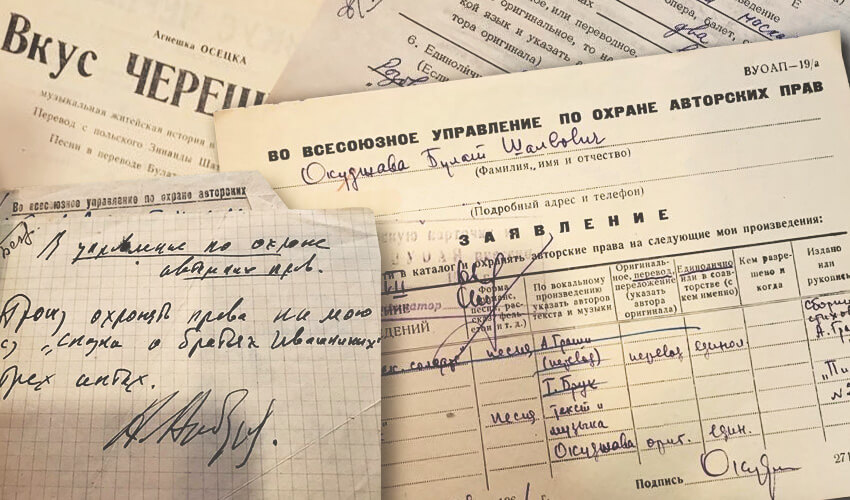 Агнешка ОСЕЦКА
Вкус ЧЕРЕШ
музыкальная житейская история
Перевод с польского Зинаиды Ша
Песни в переводе Була
ое, или переводное,
кой язык и указать а
тора оригинала)
6. Единолич
(Если
опера, балет,
два
ВУОАП—19/а
ВО ВСЕСОЮЗНОЕ УПРАВЛЕНИЕ ПО ОХРАНЕ АВТОРСКИХ ПРАВ
Окуджава Булат Шалвович
(Фамилия, имя и отчество)
(Подробный адрес и телефон)
ЗАЯВЛЕНИЕ
ти в каталог и охранять авторские права на следующие мои произведения:
НИЕ
ДЕНИЙ
Форма
песня, рас-
сказ, фель-
етон и т. д.)
По вокальному
произведению
указать авторов
текста и музыки
Оригиналь-
ное, перевод,
переложение
(указать
автора
оригинала)
Единолично
или в соав-
торстве (с
кем именно)
Кем разре-
шено и
когда
Издано
или
рукопись
солдат" песня А Граши
(перевод) перевод единол
Т. Брук
песня Текст и
музыка
Окуджава ориг. един.
сборн
стихов
А. Гра
"Пи
Подпись Окудж
271
Во всесоюзное управление по охране авторских
В управление по охране
авторских прав.
Прошу охранять права на мою
"Сказка о братьях Ивашкиных"
трех актах.